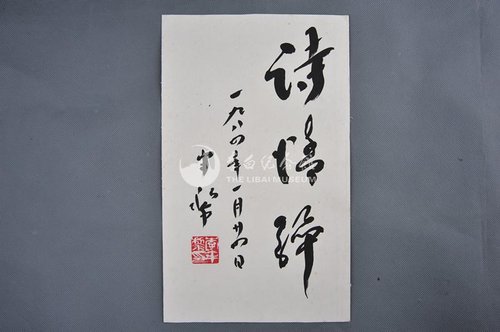 诗情
一九八四年一月廿四日
半黎
李白纪念馆
THE LIBAI MUSEUM